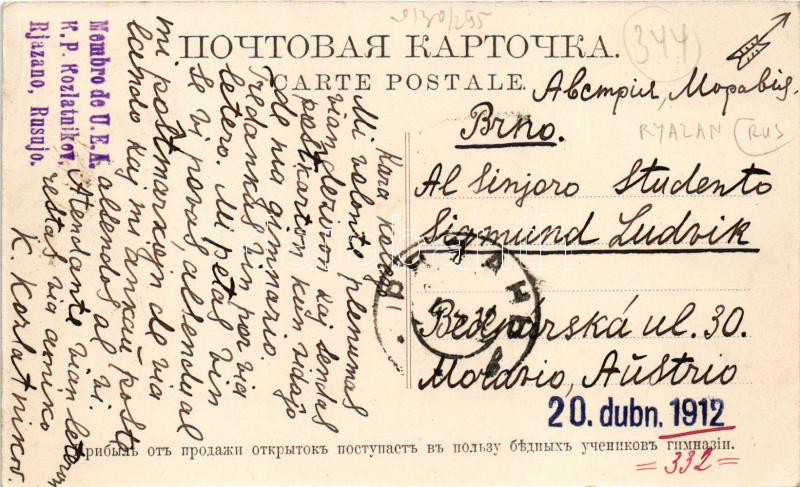 ПОЧТОВАЯ КАРТОЧКА.
CARTE POSTALE.
344
Австрія, Моравія.
Brno.
RYAZAN RUS
Al Sinjoro Studento
Sigmund Ludvik
Bednářská ul. 30.
Moravio, Aŭstrio
20. dubn. 1912
= 332 =
Прибыль отъ продажи открытокъ поступаетъ въ пользу бѣдныхъ учениковъ гимназіи.
Kara kolego!
Mi volonte plenumas
vian deziron kaj sendas
poŝtkarton kun vidaĵo
de nia gimnazio.
Tre dankas vin por via
letero. Mi petas vin
se vi povos, alsendu al
mi poŝtmarkojn de via
lando kaj mi ankaŭ poste
alsendos al vi.
Atendante vian leteron
restas via amiko
K. Kozlatnikov
Membro de U. E. A.
K. P. Kozlatnikov,
Rjazano, Rusujo.